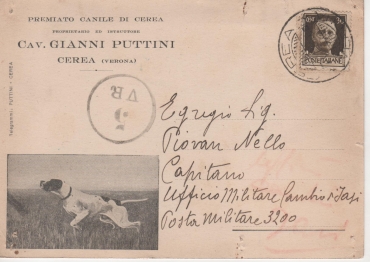 PREMIATO CANILE DI CEREA
PROPRIETARIO ED ISTRUTTORE
CAV. GIANNI PUTTINI
CEREA (VERONA)
Telegrammi: PUTTINI - CEREA
VR
POSTE ITALIANE
CEREA
Egregio Sig.
Piovan Nello
Capitano
Ufficio Militare Cambio e Tasf
Posta Militare 3200